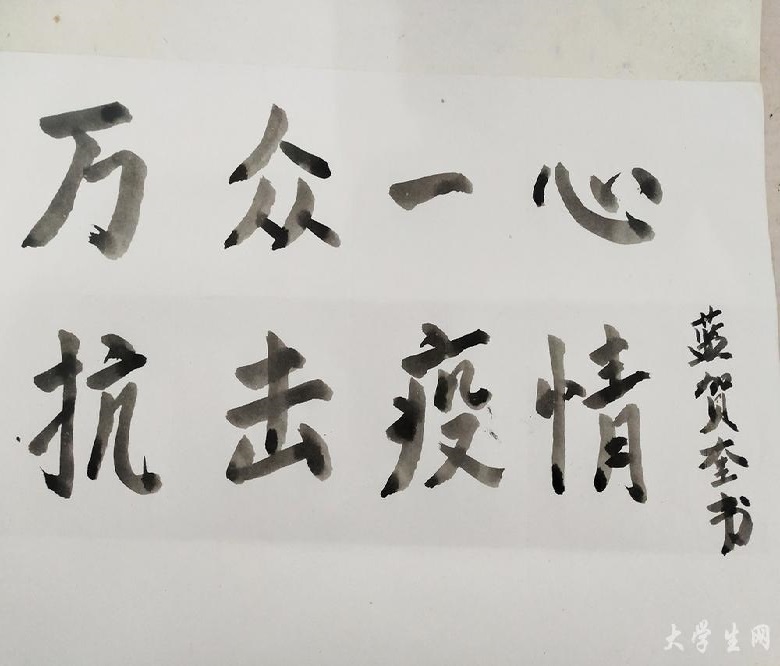 万众一心
抗击疫情
蓝贺奎书
大学生网